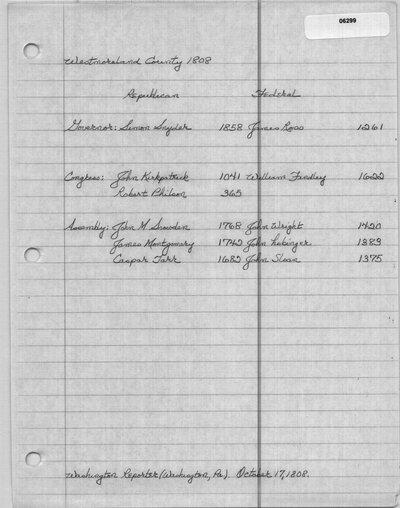 06299
Westmoreland County 1808
Republican Federal
Governor: Simon Snyder 1858 James Ross 1261
Congress: John Kirkpatrick 1041 William Findley 1622
Robert Philson 365
Assembly: John M. Snowden 1768 John Wright 1420
James Montgomery 1742 John Lobinger 1383
Caspar Tarr 1682 John Sloan 1375
Washington Reporter (Washington, Pa). October 17, 1808.